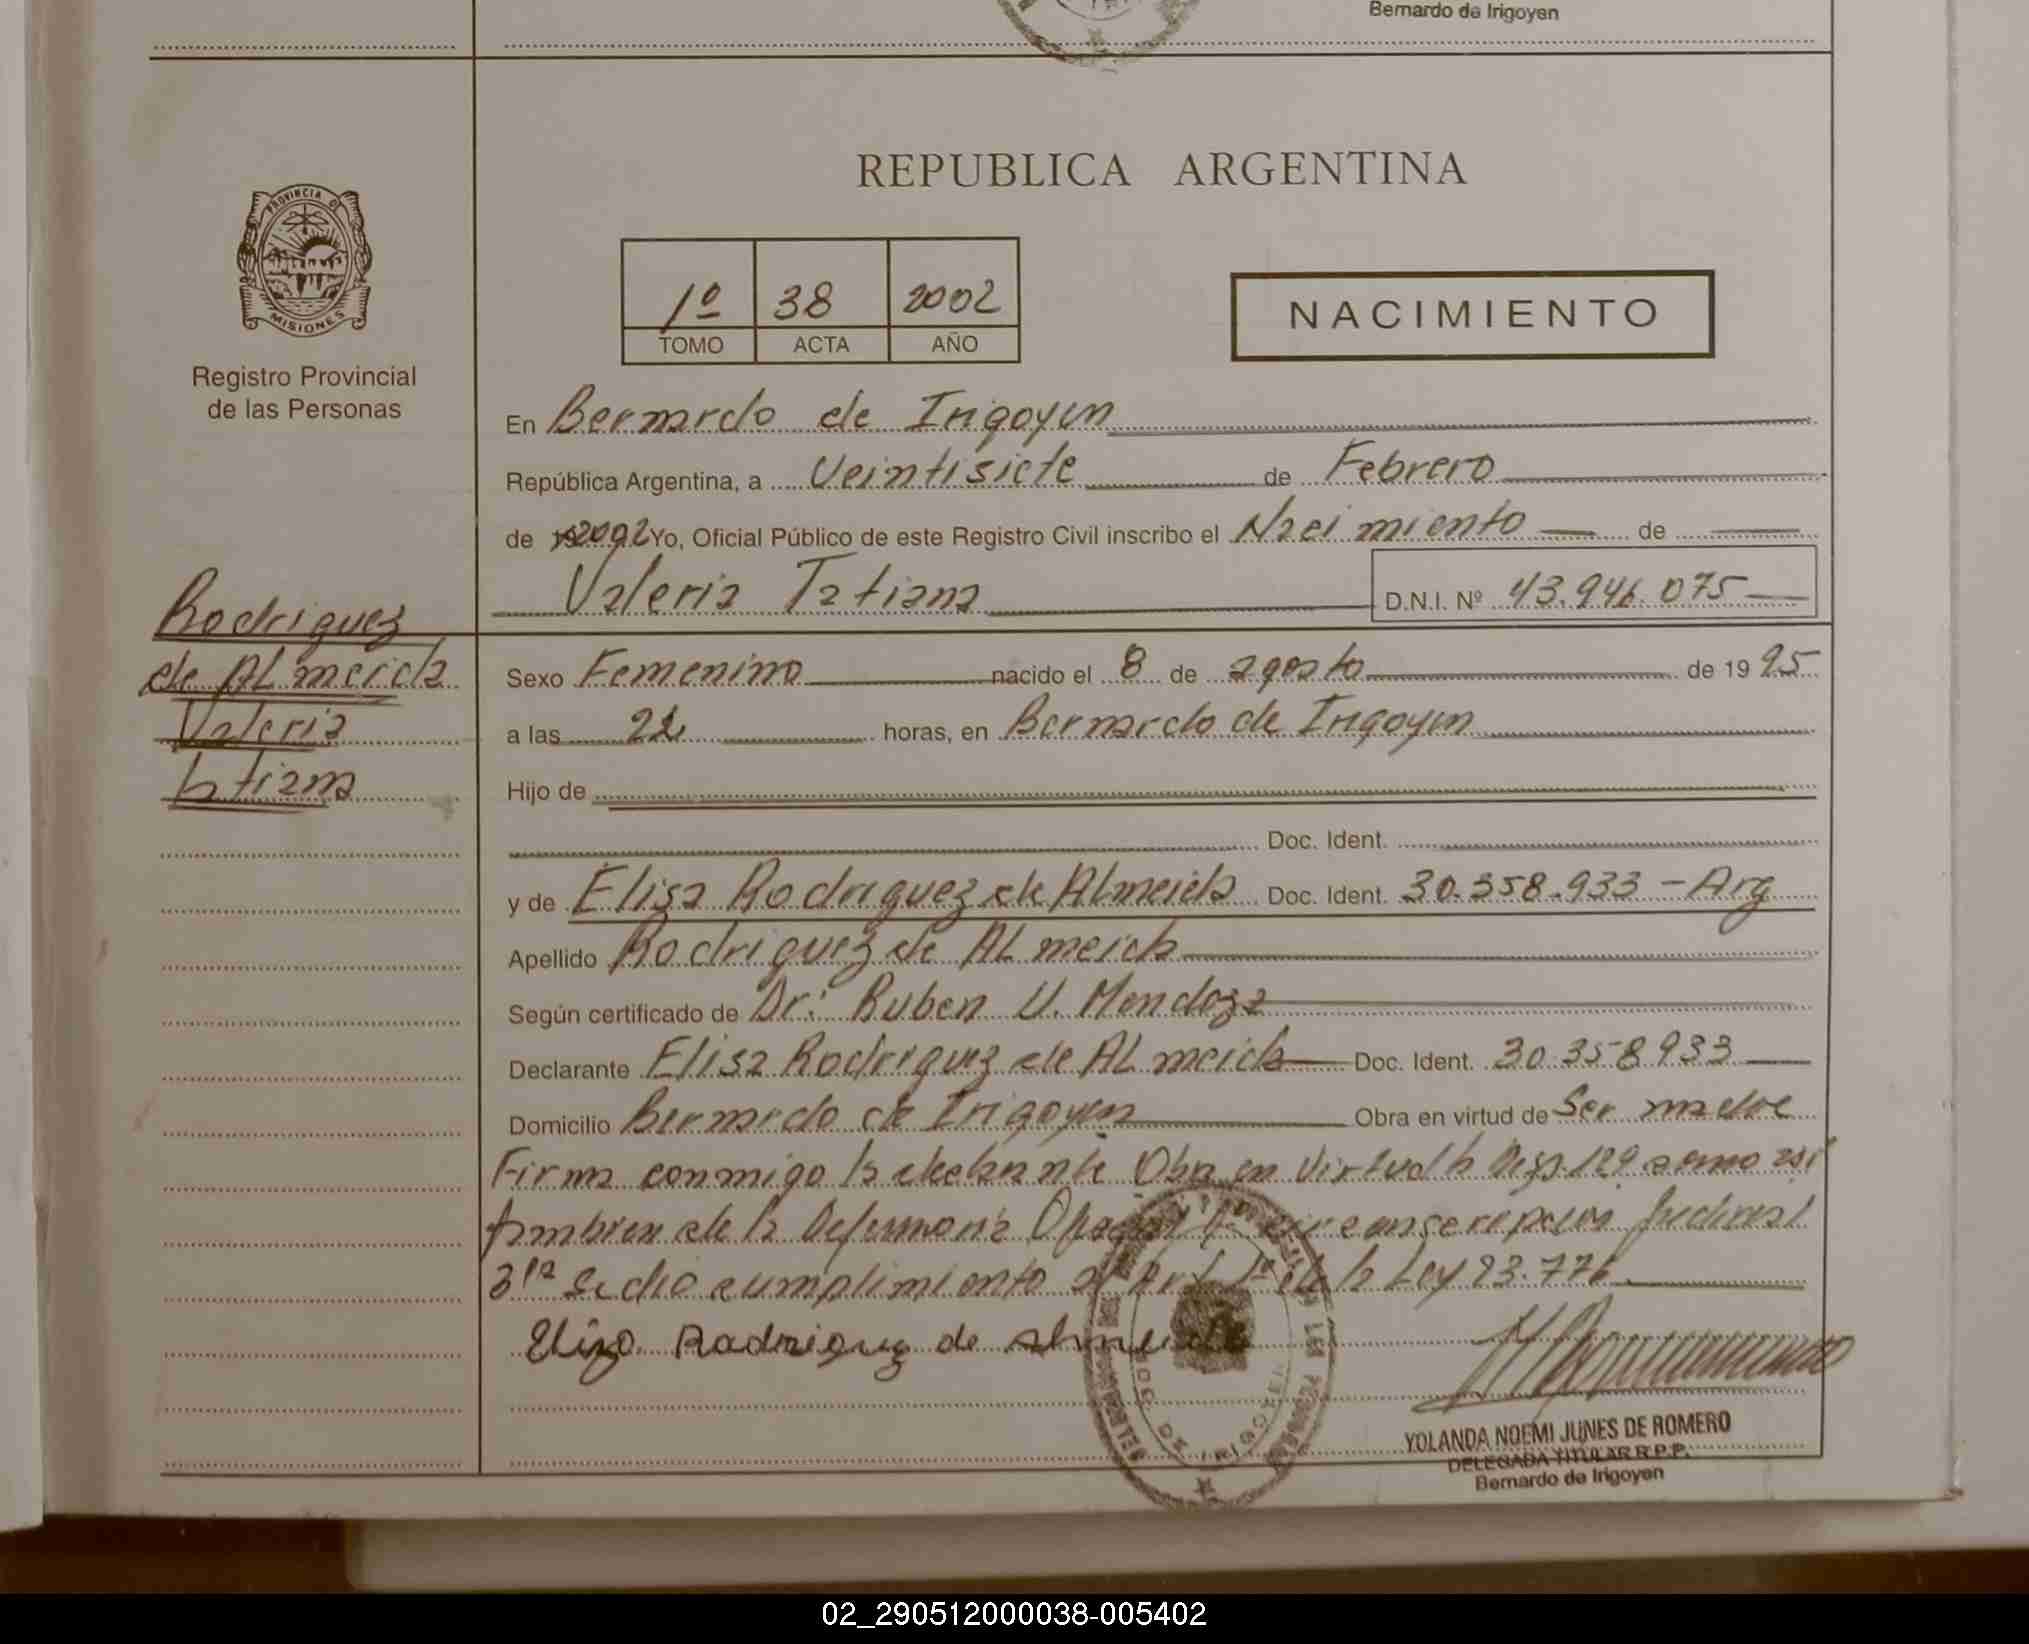 Bernardo de Irigoyen
REPUBLICA ARGENTINA
PROVINCIA DE
MISIONES
Registro Provincial
de las Personas
1º 38 2002
TOMO ACTA AÑO
NACIMIENTO
En Bernardo de Irigoyen
República Argentina, a Veintisiete de Febrero
de 19 2002 Yo, Oficial Público de este Registro Civil inscribo el Nacimiento de
Valeria Tatiana D.N.I. Nº 43.946.075
Rodriguez
de ALmeida
Valeria
Tatiana
Sexo Femenino nacido el 8 de agosto de 1995
a las horas, en Bernardo de Irigoyen
Hijo de
Doc. Ident.
y de Elisa Rodriguez de ALmeida Doc. Ident. 30.358.933 - Arg
Apellido Rodriguez de ALmeida
Según certificado de Dr: Ruben U. Mendoza
Declarante Elisa Rodriguez de ALmeida Doc. Ident. 30.358.933
Domicilio Bernardo de Irigoyen Obra en virtud de Ser madre
Firma conmigo la declarante Obra en virtud la 129 como asi
tambien de la Defensoria circunscripcion Judicial
3ra cumplimiento al Art 1º de la Ley 23.776
Eliza Rodriguez de Almeida
YOLANDA NOEMI JUNES DE ROMERO
DELEGADA TITULAR R.P.P.
Bernardo de Irigoyen
02_290512000038-005402